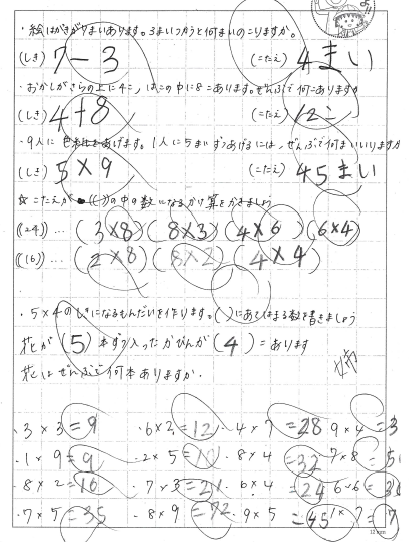 ・絵はがきが7まいあります。3まいつかうと何まいのこりますか。
(しき) 7-3 (こたえ) 4まい
・おかしがさらの上に4こ、はこの中に8こあります。ぜんぶで何こありますか
(しき) 4+8 (こたえ) 12こ
・9人に色紙をあげます。1人に5まいずつあげるには、ぜんぶで何まいいりますか
(しき) 5×9 (こたえ) 45まい
☆こたえが(( ))の中の数になるかけ算をかきましょう
((24)) … (3×8)(8×3)(4×6)(6×4)
((16)) … (2×8)(8×2)(4×4)
・5×4のしきになるもんだいを作ります。( )にあてはまる数を書きましょう
花が(5)本ずつ入ったかびんが(4)こあります
花はぜんぶで何本ありますか.
・3×3=9 ・6×2=12 ・4×7=28 9×4=3
・1×9=9 ・2×5=10 ・8×4=32 ・7×8=5
・8×2=16 ・7×3=21 ・6×4=24 6×6=3
・7×5=35 ・8×9=72 ・9×5=45 1×7=7